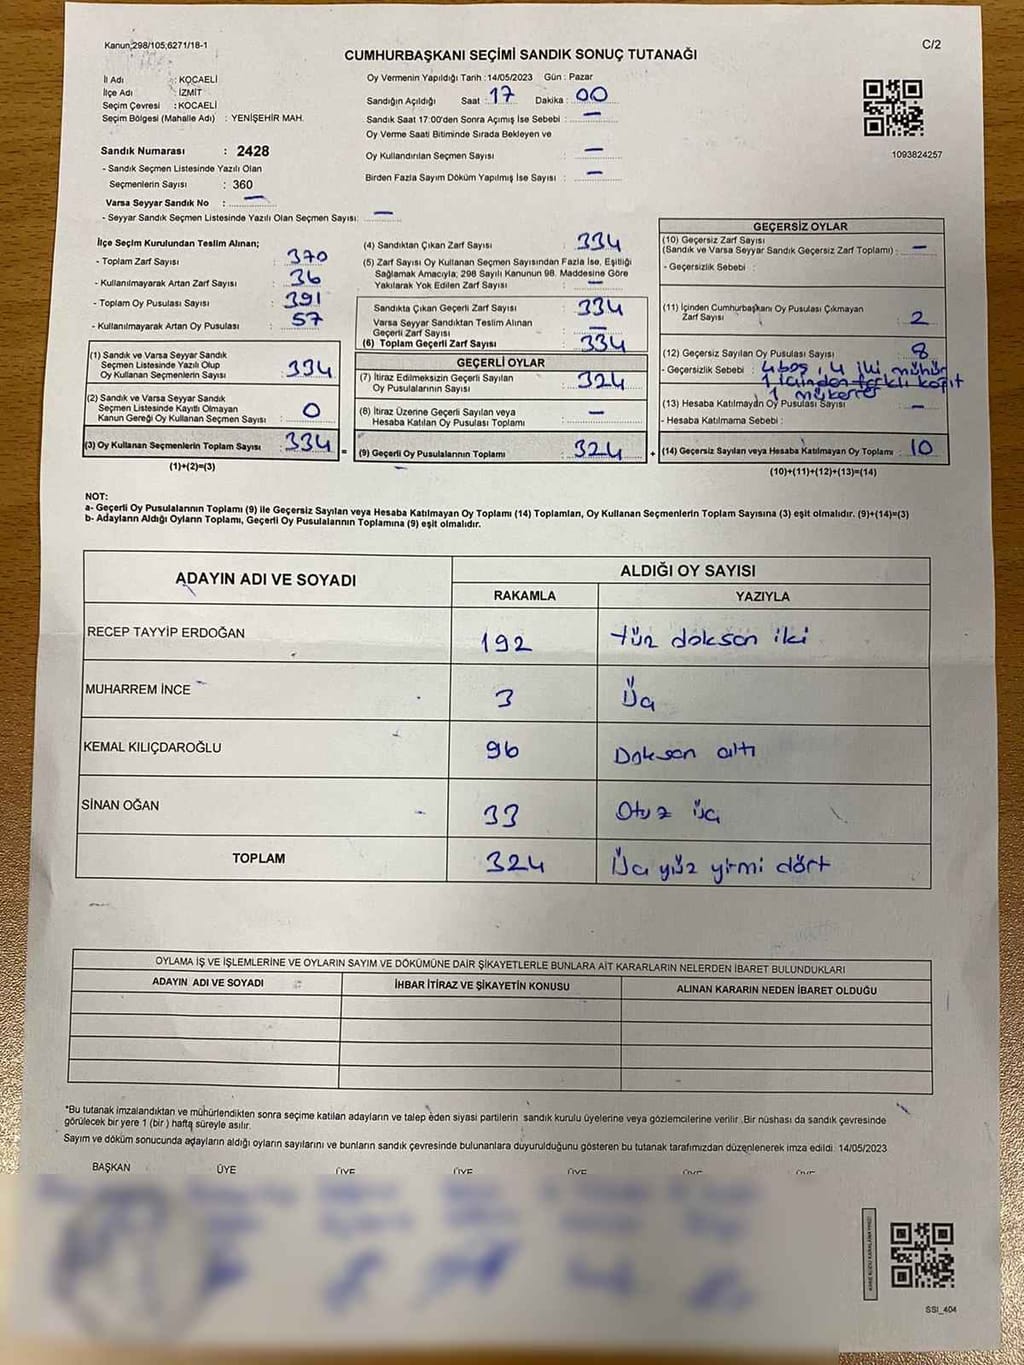 Kanun;298/105;6271/18-1
C/2
CUMHURBAŞKANI SEÇİMİ SANDIK SONUÇ TUTANAĞI
İl Adı : KOCAELİ
İlçe Adı : İZMİT
Seçim Çevresi : KOCAELİ
Seçim Bölgesi (Mahalle Adı) : YENİŞEHİR MAH.
Oy Vermenin Yapıldığı Tarih : 14/05/2023 Gün : Pazar
Sandığın Açıldığı Saat : 17 Dakika : 00
Sandık Saat 17:00'den Sonra Açımış İse Sebebi : —
Oy Verme Saati Bitiminde Sırada Bekleyen ve
Oy Kullandırılan Seçmen Sayısı : —
Birden Fazla Sayım Döküm Yapılmış İse Sayısı : —
1093824257
Sandık Numarası : 2428
- Sandık Seçmen Listesinde Yazılı Olan
Seçmenlerin Sayısı : 360
Varsa Seyyar Sandık No : —
- Seyyar Sandık Seçmen Listesinde Yazılı Olan Seçmen Sayısı: —
İlçe Seçim Kurulundan Teslim Alınan;
- Toplam Zarf Sayısı : 370
- Kullanılmayarak Artan Zarf Sayısı : 36
- Toplam Oy Pusulası Sayısı : 391
- Kullanılmayarak Artan Oy Pusulası : 57
(1) Sandık ve Varsa Seyyar Sandık
Seçmen Listesinde Yazılı Olup
Oy Kullanan Seçmenlerin Sayısı : 334
(2) Sandık ve Varsa Seyyar Sandık
Seçmen Listesinde Kayıtlı Olmayan
Kanun Gereği Oy Kullanan Seçmen Sayısı : 0
(3) Oy Kullanan Seçmenlerin Toplam Sayısı : 334
(1)+(2)=(3)
(4) Sandıktan Çıkan Zarf Sayısı : 334
(5) Zarf Sayısı Oy Kullanan Seçmen Sayısından Fazla İse, Eşitliği
Sağlamak Amacıyla; 298 Sayılı Kanunun 98. Maddesine Göre
Yakılarak Yok Edilen Zarf Sayısı : —
Sandıkta Çıkan Geçerli Zarf Sayısı : 334
Varsa Seyyar Sandıktan Teslim Alınan
Geçerli Zarf Sayısı : —
(6) Toplam Geçerli Zarf Sayısı : 334
GEÇERLİ OYLAR
(7) İtiraz Edilmeksizin Geçerli Sayılan
Oy Pusulalarının Sayısı : 324
(8) İtiraz Üzerine Geçerli Sayılan veya
Hesaba Katılan Oy Pusulası Toplamı : —
= (9) Geçerli Oy Pusulalarının Toplamı : 324
GEÇERSİZ OYLAR
(10) Geçersiz Zarf Sayısı
(Sandık ve Varsa Seyyar Sandık Geçersiz Zarf Toplamı) : —
- Geçersizlik Sebebi :
(11) İçinden Cumhurbaşkanı Oy Pusulası Çıkmayan
Zarf Sayısı : 2
(12) Geçersiz Sayılan Oy Pusulası Sayısı : 8
- Geçersizlik Sebebi : 4 boş, 4 iki mühür
1 içinden farklı kağıt
1 mükerrer
(13) Hesaba Katılmayan Oy Pusulası Sayısı : —
- Hesaba Katılmama Sebebi :
+ (14) Geçersiz Sayılan veya Hesaba Katılmayan Oy Toplamı : 10
(10)+(11)+(12)+(13)=(14)
NOT:
a- Geçerli Oy Pusulalarının Toplamı (9) ile Geçersiz Sayılan veya Hesaba Katılmayan Oy Toplamı (14) Toplamları, Oy Kullanan Seçmenlerin Toplam Sayısına (3) eşit olmalıdır. (9)+(14)=(3)
b- Adayların Aldığı Oyların Toplamı, Geçerli Oy Pusulalarının Toplamına (9) eşit olmalıdır.
ADAYIN ADI VE SOYADI
ALDIĞI OY SAYISI
RAKAMLA YAZIYLA
RECEP TAYYİP ERDOĞAN 192 yüz doksan iki
MUHARREM İNCE 3 Üç
KEMAL KILIÇDAROĞLU 96 Doksan altı
SİNAN OĞAN 33 Otuz üç
TOPLAM 324 Üç yüz yirmi dört
OYLAMA İŞ VE İŞLEMLERİNE VE OYLARIN SAYIM VE DÖKÜMÜNE DAİR ŞİKAYETLERLE BUNLARA AİT KARARLARIN NELERDEN İBARET BULUNDUKLARI
ADAYIN ADI VE SOYADI İHBAR İTİRAZ VE ŞİKAYETİN KONUSU ALINAN KARARIN NEDEN İBARET OLDUĞU
*Bu tutanak imzalandıktan ve mühürlendikten sonra seçime katılan adayların ve talep eden siyasi partilerin sandık kurulu üyelerine veya gözlemcilerine verilir .Bir nüshası da sandık çevresinde
görülecek bir yere 1 (bir ) hafta süreyle asılır.
Sayım ve döküm sonucunda adayların aldığı oyların sayılarını ve bunların sandık çevresinde bulunanlara duyurulduğunu gösteren bu tutanak tarafımızdan düzenlenerek imza edildi. 14/05/2023
BAŞKAN ÜYE ÜYE ÜYE ÜYE ÜYE
SSI_404